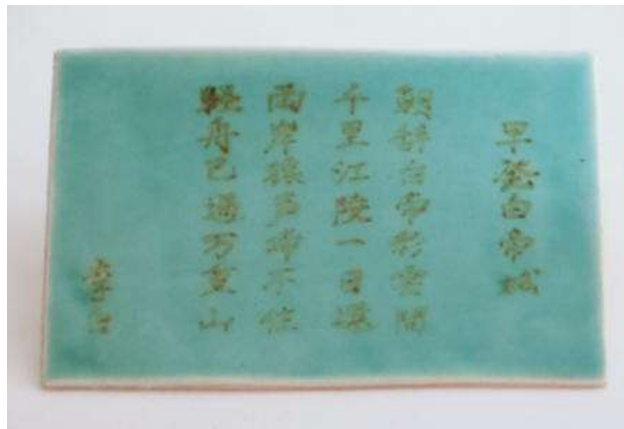 早發白帝城
朝辞白帝彩雲間
千里江陵一日還
兩岸猿声啼不住
軽舟已過万重山
李白